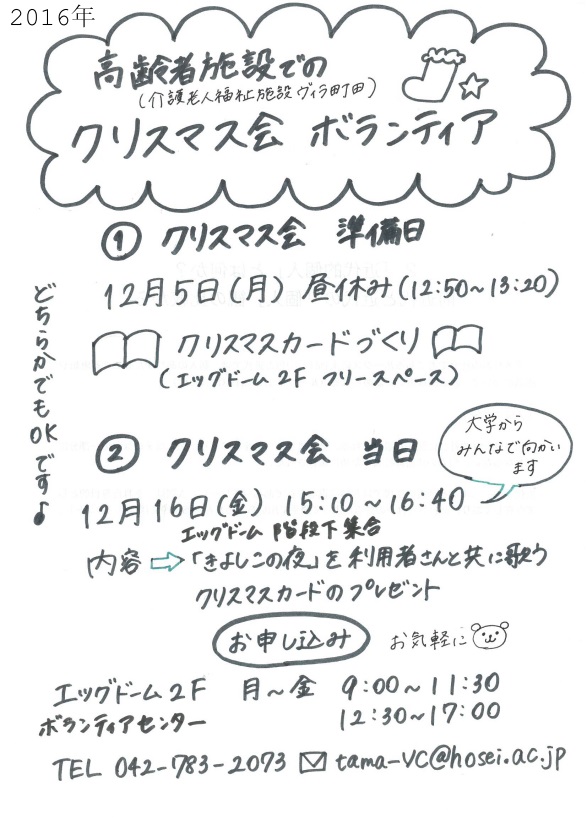 2016年
高齢者施設での
(介護老人福祉施設 ヴィラ町田)
クリスマス会 ボランティア
① クリスマス会 準備日
12月5日(月) 昼休み(12:50~13:20)
クリスマスカードづくり
(エッグドーム2F フリースペース)
どちらかでもOKです♪
② クリスマス会 当日
大学から
みんなで向かい
ます
12月16日(金) 15:10~16:40
エッグドーム 階段下集合
内容⇨「きよしこの夜」を利用者さんと共に歌う
クリスマスカードのプレゼント
お申し込み お気軽に
エッグドーム2F 月~金 9:00~11:30
ボランティアセンター 12:30~17:00
TEL 042-783-2073 ✉ tama-vc@hosei.ac.jp